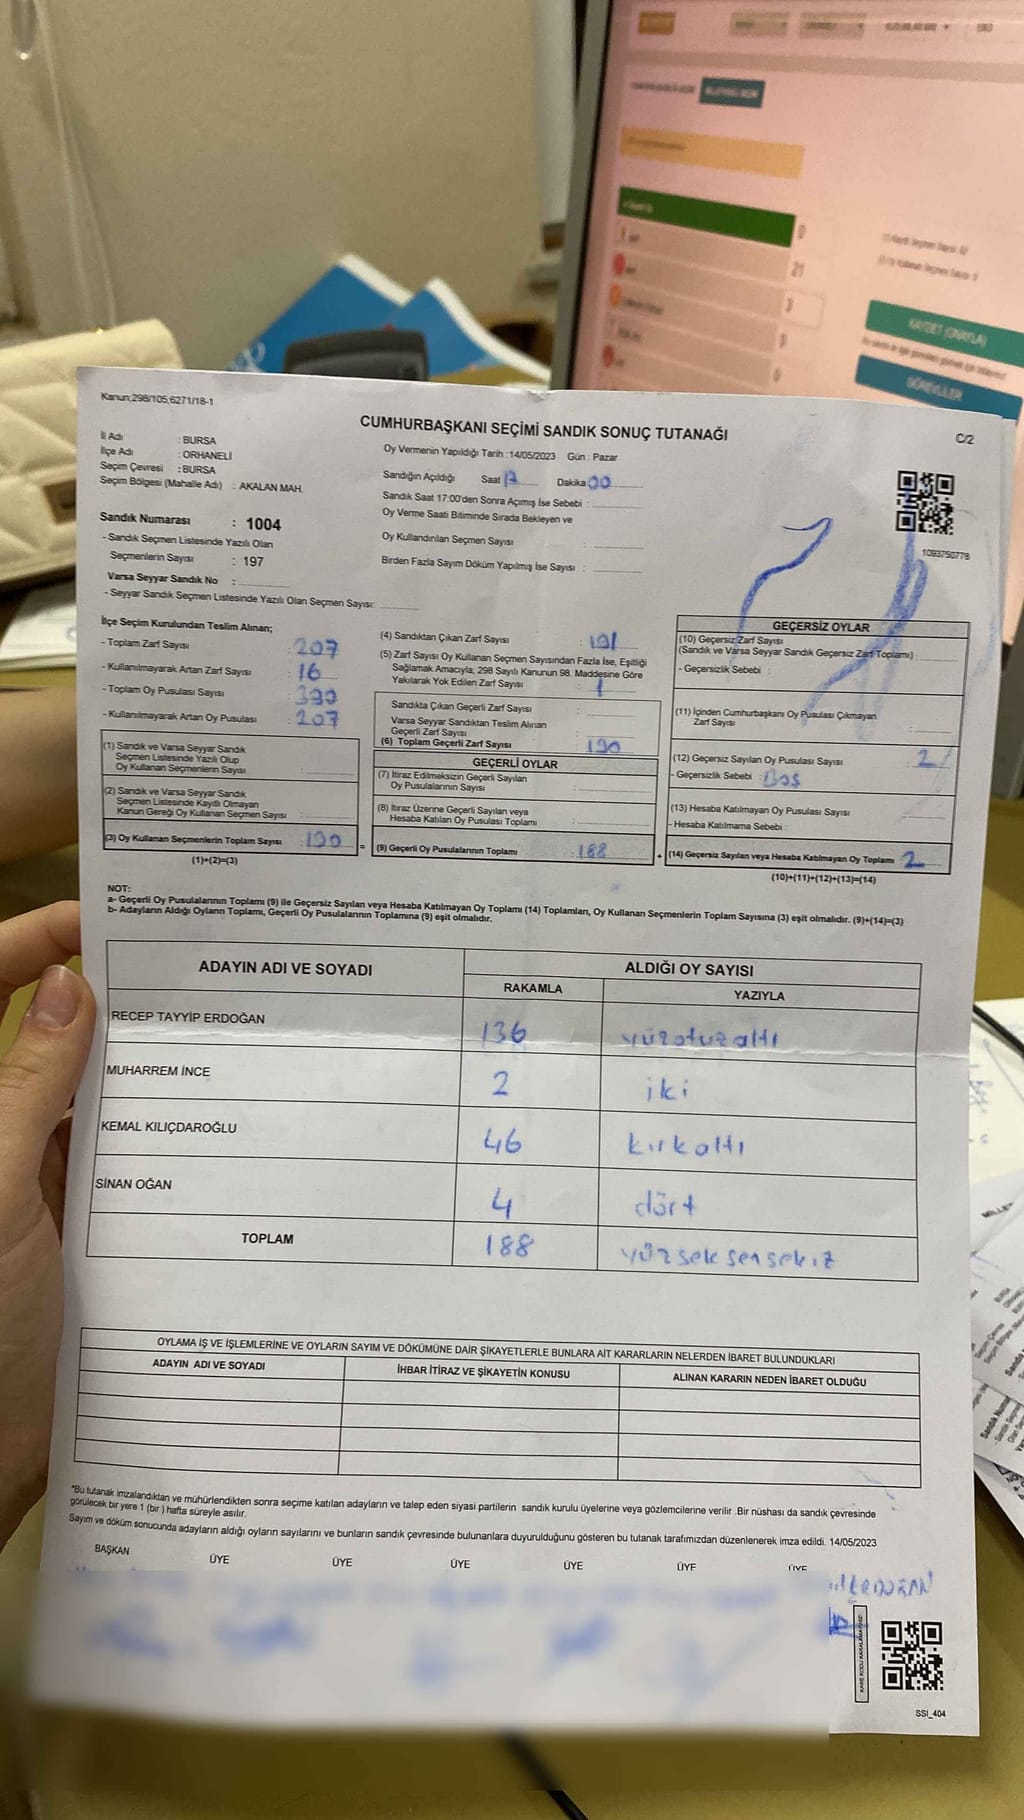 KAYDET (ONAYLA)
GÖREVLİLER
Kanun;298/105;6271/18-1
CUMHURBAŞKANI SEÇİMİ SANDIK SONUÇ TUTANAĞI
C/2
İl Adı : BURSA
İlçe Adı : ORHANELİ
Seçim Çevresi : BURSA
Seçim Bölgesi (Mahalle Adı) : AKALAN MAH.
Oy Vermenin Yapıldığı Tarih :14/05/2023 Gün : Pazar
Sandığın Açıldığı Saat 17 Dakika 00
Sandık Saat 17:00'den Sonra Açımış İse Sebebi :
Oy Verme Saati Bitiminde Sırada Bekleyen ve
Oy Kullandırılan Seçmen Sayısı :
Birden Fazla Sayım Döküm Yapılmış İse Sayısı :
1093750778
Sandık Numarası : 1004
- Sandık Seçmen Listesinde Yazılı Olan
Seçmenlerin Sayısı : 197
Varsa Seyyar Sandık No :
- Seyyar Sandık Seçmen Listesinde Yazılı Olan Seçmen Sayısı:
İlçe Seçim Kurulundan Teslim Alınan;
- Toplam Zarf Sayısı : 207
- Kullanılmayarak Artan Zarf Sayısı : 16
- Toplam Oy Pusulası Sayısı : 390
- Kullanılmayarak Artan Oy Pusulası : 207
(1) Sandık ve Varsa Seyyar Sandık
Seçmen Listesinde Yazılı Olup
Oy Kullanan Seçmenlerin Sayısı :
(2) Sandık ve Varsa Seyyar Sandık
Seçmen Listesinde Kayıtlı Olmayan
Kanun Gereği Oy Kullanan Seçmen Sayısı :
(3) Oy Kullanan Seçmenlerin Toplam Sayısı : 190
(1)+(2)=(3)
(4) Sandıktan Çıkan Zarf Sayısı : 191
(5) Zarf Sayısı Oy Kullanan Seçmen Sayısından Fazla İse, Eşitliği
Sağlamak Amacıyla, 298 Sayılı Kanunun 98. Maddesine Göre
Yakılarak Yok Edilen Zarf Sayısı : 1
Sandıkta Çıkan Geçerli Zarf Sayısı :
Varsa Seyyar Sandıktan Teslim Alınan
Geçerli Zarf Sayısı :
(6) Toplam Geçerli Zarf Sayısı : 190
GEÇERLİ OYLAR
(7) İtiraz Edilmeksizin Geçerli Sayılan
Oy Pusulalarının Sayısı :
(8) İtiraz Üzerine Geçerli Sayılan veya
Hesaba Katılan Oy Pusulası Toplamı :
= (9) Geçerli Oy Pusulalarının Toplamı : 188
GEÇERSİZ OYLAR
(10) Geçersiz Zarf Sayısı
(Sandık ve Varsa Seyyar Sandık Geçersiz Zarf Toplamı) :
- Geçersizlik Sebebi :
(11) İçinden Cumhurbaşkanı Oy Pusulası Çıkmayan
Zarf Sayısı :
(12) Geçersiz Sayılan Oy Pusulası Sayısı : 2
- Geçersizlik Sebebi : Boş
(13) Hesaba Katılmayan Oy Pusulası Sayısı :
- Hesaba Katılmama Sebebi :
+ (14) Geçersiz Sayılan veya Hesaba Katılmayan Oy Toplamı 2
(10)+(11)+(12)+(13)=(14)
NOT:
a- Geçerli Oy Pusulalarının Toplamı (9) ile Geçersiz Sayılan veya Hesaba Katılmayan Oy Toplamı (14) Toplamları, Oy Kullanan Seçmenlerin Toplam Sayısına (3) eşit olmalıdır. (9)+(14)=(3)
b- Adayların Aldığı Oyların Toplamı, Geçerli Oy Pusulalarının Toplamına (9) eşit olmalıdır.
ADAYIN ADI VE SOYADI ALDIĞI OY SAYISI
RAKAMLA YAZIYLA
RECEP TAYYİP ERDOĞAN 136 yüzotuzaltı
MUHARREM İNCE 2 iki
KEMAL KILIÇDAROĞLU 46 kırkaltı
SİNAN OĞAN 4 dört
TOPLAM 188 yüzseksensekiz
OYLAMA İŞ VE İŞLEMLERİNE VE OYLARIN SAYIM VE DÖKÜMÜNE DAİR ŞİKAYETLERLE BUNLARA AİT KARARLARIN NELERDEN İBARET BULUNDUKLARI
ADAYIN ADI VE SOYADI İHBAR İTİRAZ VE ŞİKAYETİN KONUSU ALINAN KARARIN NEDEN İBARET OLDUĞU
"Bu tutanak imzalandıktan ve mühürlendikten sonra seçime katılan adayların ve talep eden siyasi partilerin sandık kurulu üyelerine veya gözlemcilerine verilir .Bir nüshası da sandık çevresinde
görülecek bir yere 1 (bir ) hafta süreyle asılır.
Sayım ve döküm sonucunda adayların aldığı oyların sayılarını ve bunların sandık çevresinde bulunanlara duyurulduğunu gösteren bu tutanak tarafımızdan düzenlenerek imza edildi. 14/05/2023
BAŞKAN ÜYE ÜYE ÜYE ÜYE ÜYE ÜYE
SSI_404